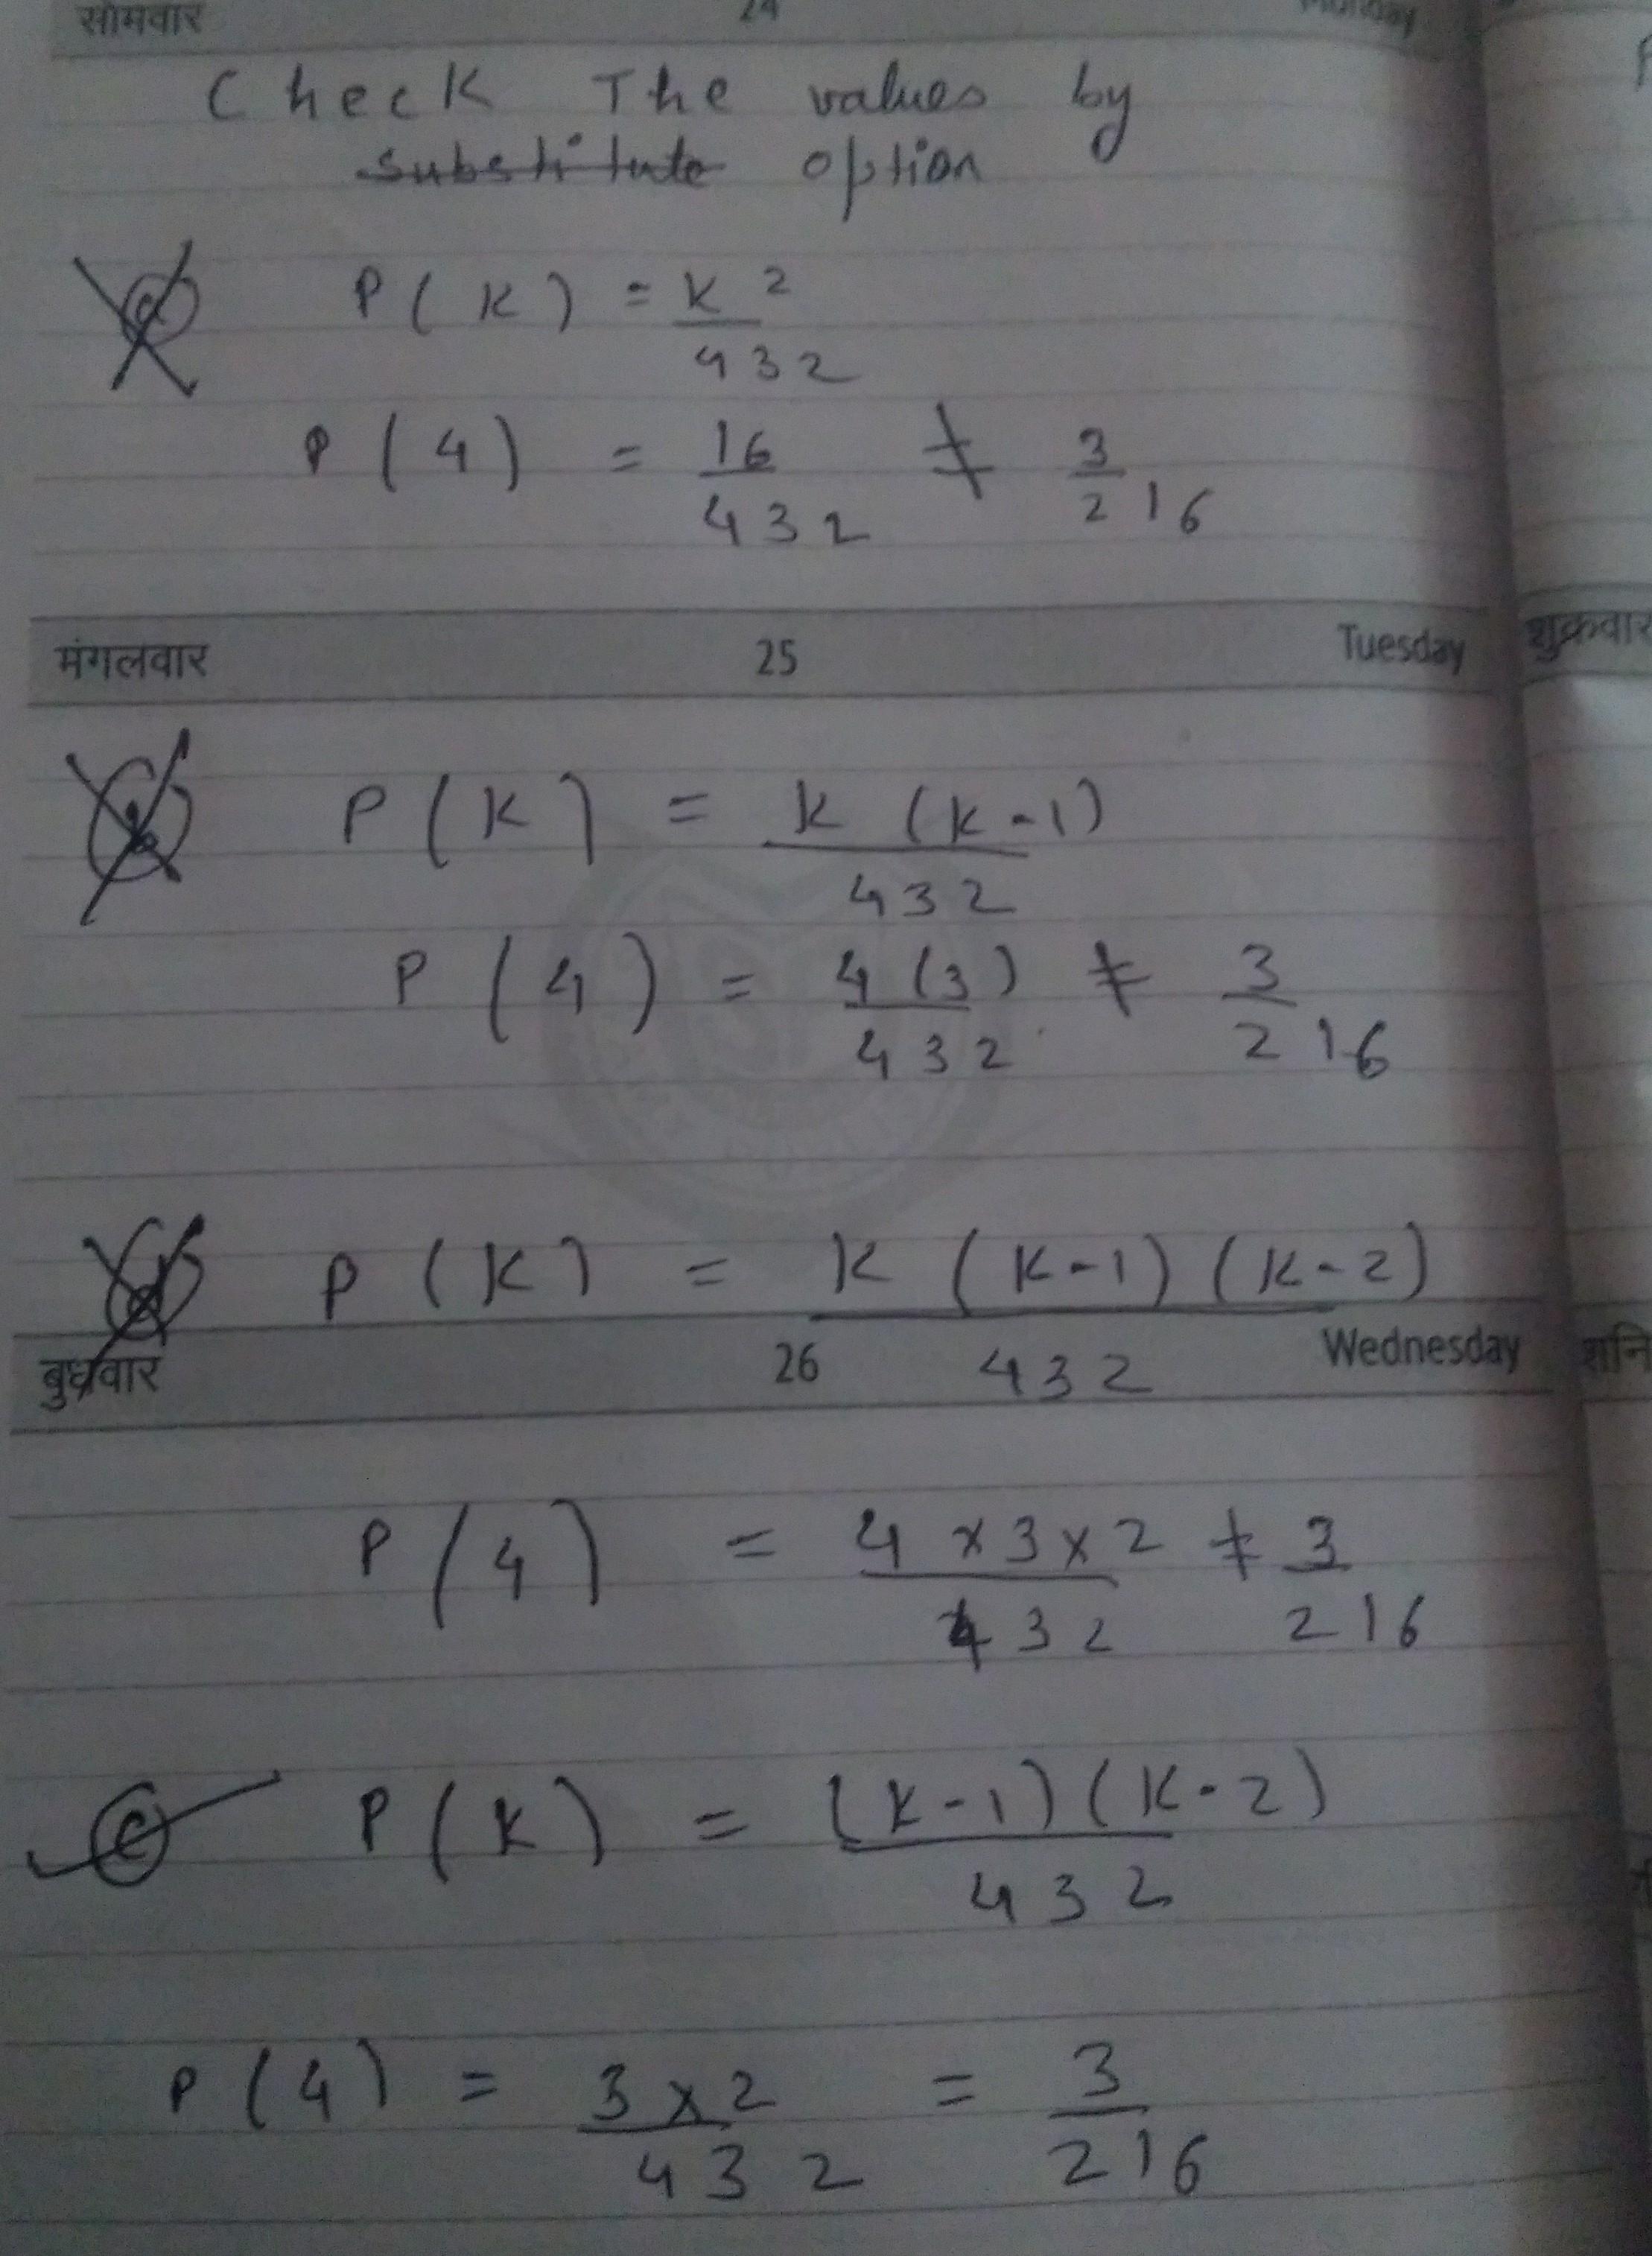 सोमवार 24 Monday
Check The values by
substitute option
a P(K) = K²
432
P(4) = 16 ≠ 3
432 216
मंगलवार 25 Tuesday शुक्रवार
b P(K) = K (K-1)
432
P(4) = 4(3) ≠ 3
432 216
d P(K) = K (K-1)(K-2)
बुधवार 26 432 Wednesday शनि
P(4) = 4×3×2 ≠ 3
432 216
c P(K) = (K-1)(K-2)
432
P(4) = 3×2 = 3
432 216